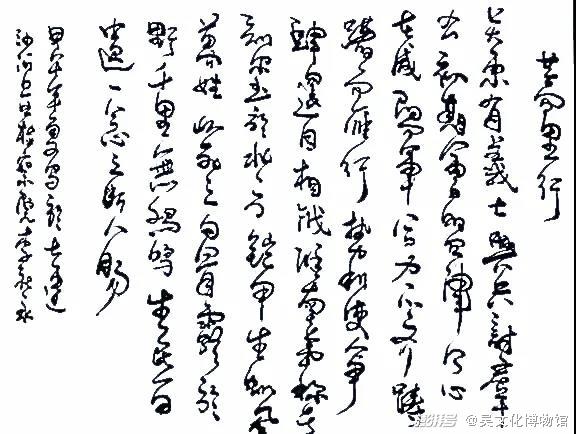 蒿里行
關東有義士 興兵討羣
凶 初期會盟津 乃心
在咸陽 軍合力不齊 躊
躇而雁行 勢利使人爭
嗣還自相戕 淮南弟稱號
刻璽於北方 鎧甲生蟣虱
萬姓以死亡 白骨露於
野 千里無鷄鳴 生民百
遺一 念之斷人腸
年夏寫於古運
澎湃 @吴文化博物馆